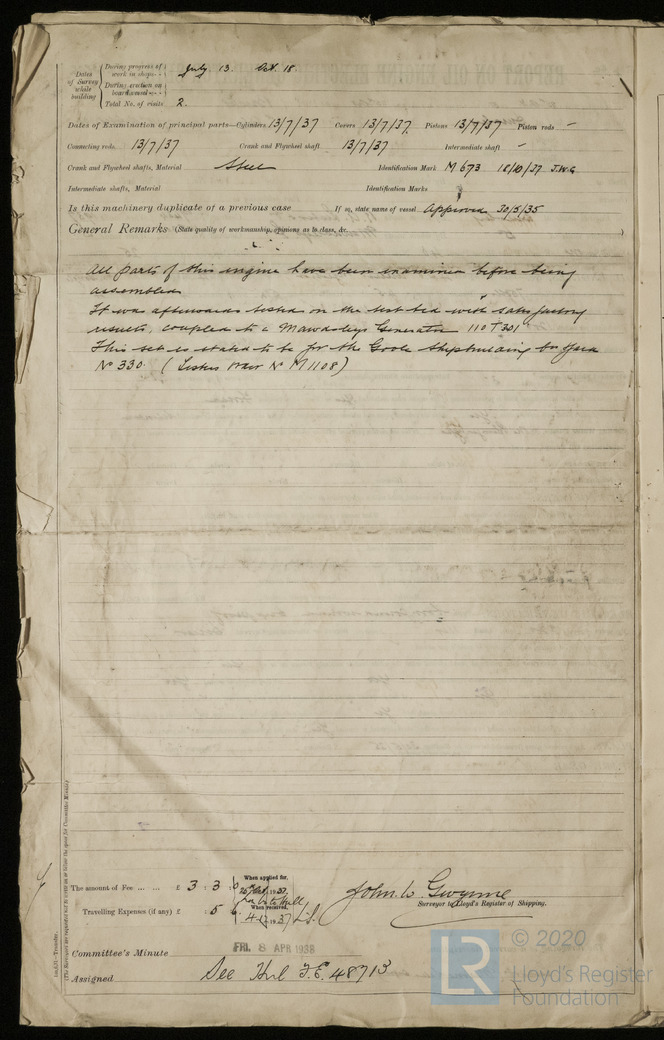 Dates of Survey while building
During progress of work in shops-- July 13. Oct. 18
During erection on board vessel--
Total No. of visits 2.
Dates of Examination of principal parts—Cylinders 13/7/37 Covers 13/7/37. Pistons 13/7/37 Piston rods –
Connecting rods. 13/7/37 Crank and Flywheel shaft 13/7/37 Intermediate shaft –
Crank and Flywheel shafts, Material Steel Identification Mark M 673 18/10/37 J.W.G
Intermediate shafts, Material Identification Marks
Is this machinery duplicate of a previous case If so, state name of vessel Approved 30/5/35
General Remarks (State quality of workmanship, opinions as to class, &c.
All parts of this engine have been examined before being
assembled
It was afterwards tested on the test bed with satisfactory
results, coupled to a Mawdsleys Generator 110T301
This set is stated to be for the Goole Shipbuilding Co Yard
No 330. (Listers Order No M1108)
The amount of Fee ... ... £ 3 : 3 : 0
When applied for,
1937
Travelling Expenses (if any) £ : 5 : 6
When received,
1937
John W. Gwynne
Surveyor to Lloyd's Register of Shipping.
Committee's Minute FRI. 8 APR 1938
Assigned See Hul F.E. 48713
(The Surveyors are requested not to write on or below the space for Committee Minute.)
© 2020
LR
Lloyd's Register
Foundation